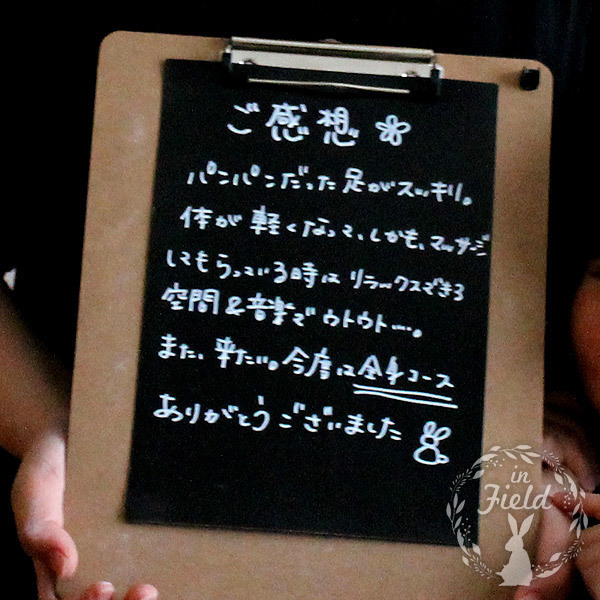 ご感想
パンパンだった足がスッキリ。
体が軽くなって、しかも、マッサージ
してもらっている時はリラックスできる
空間&音楽でウトウト…。
また、来たい。今度は全身コース
ありがとうございました
in
Field